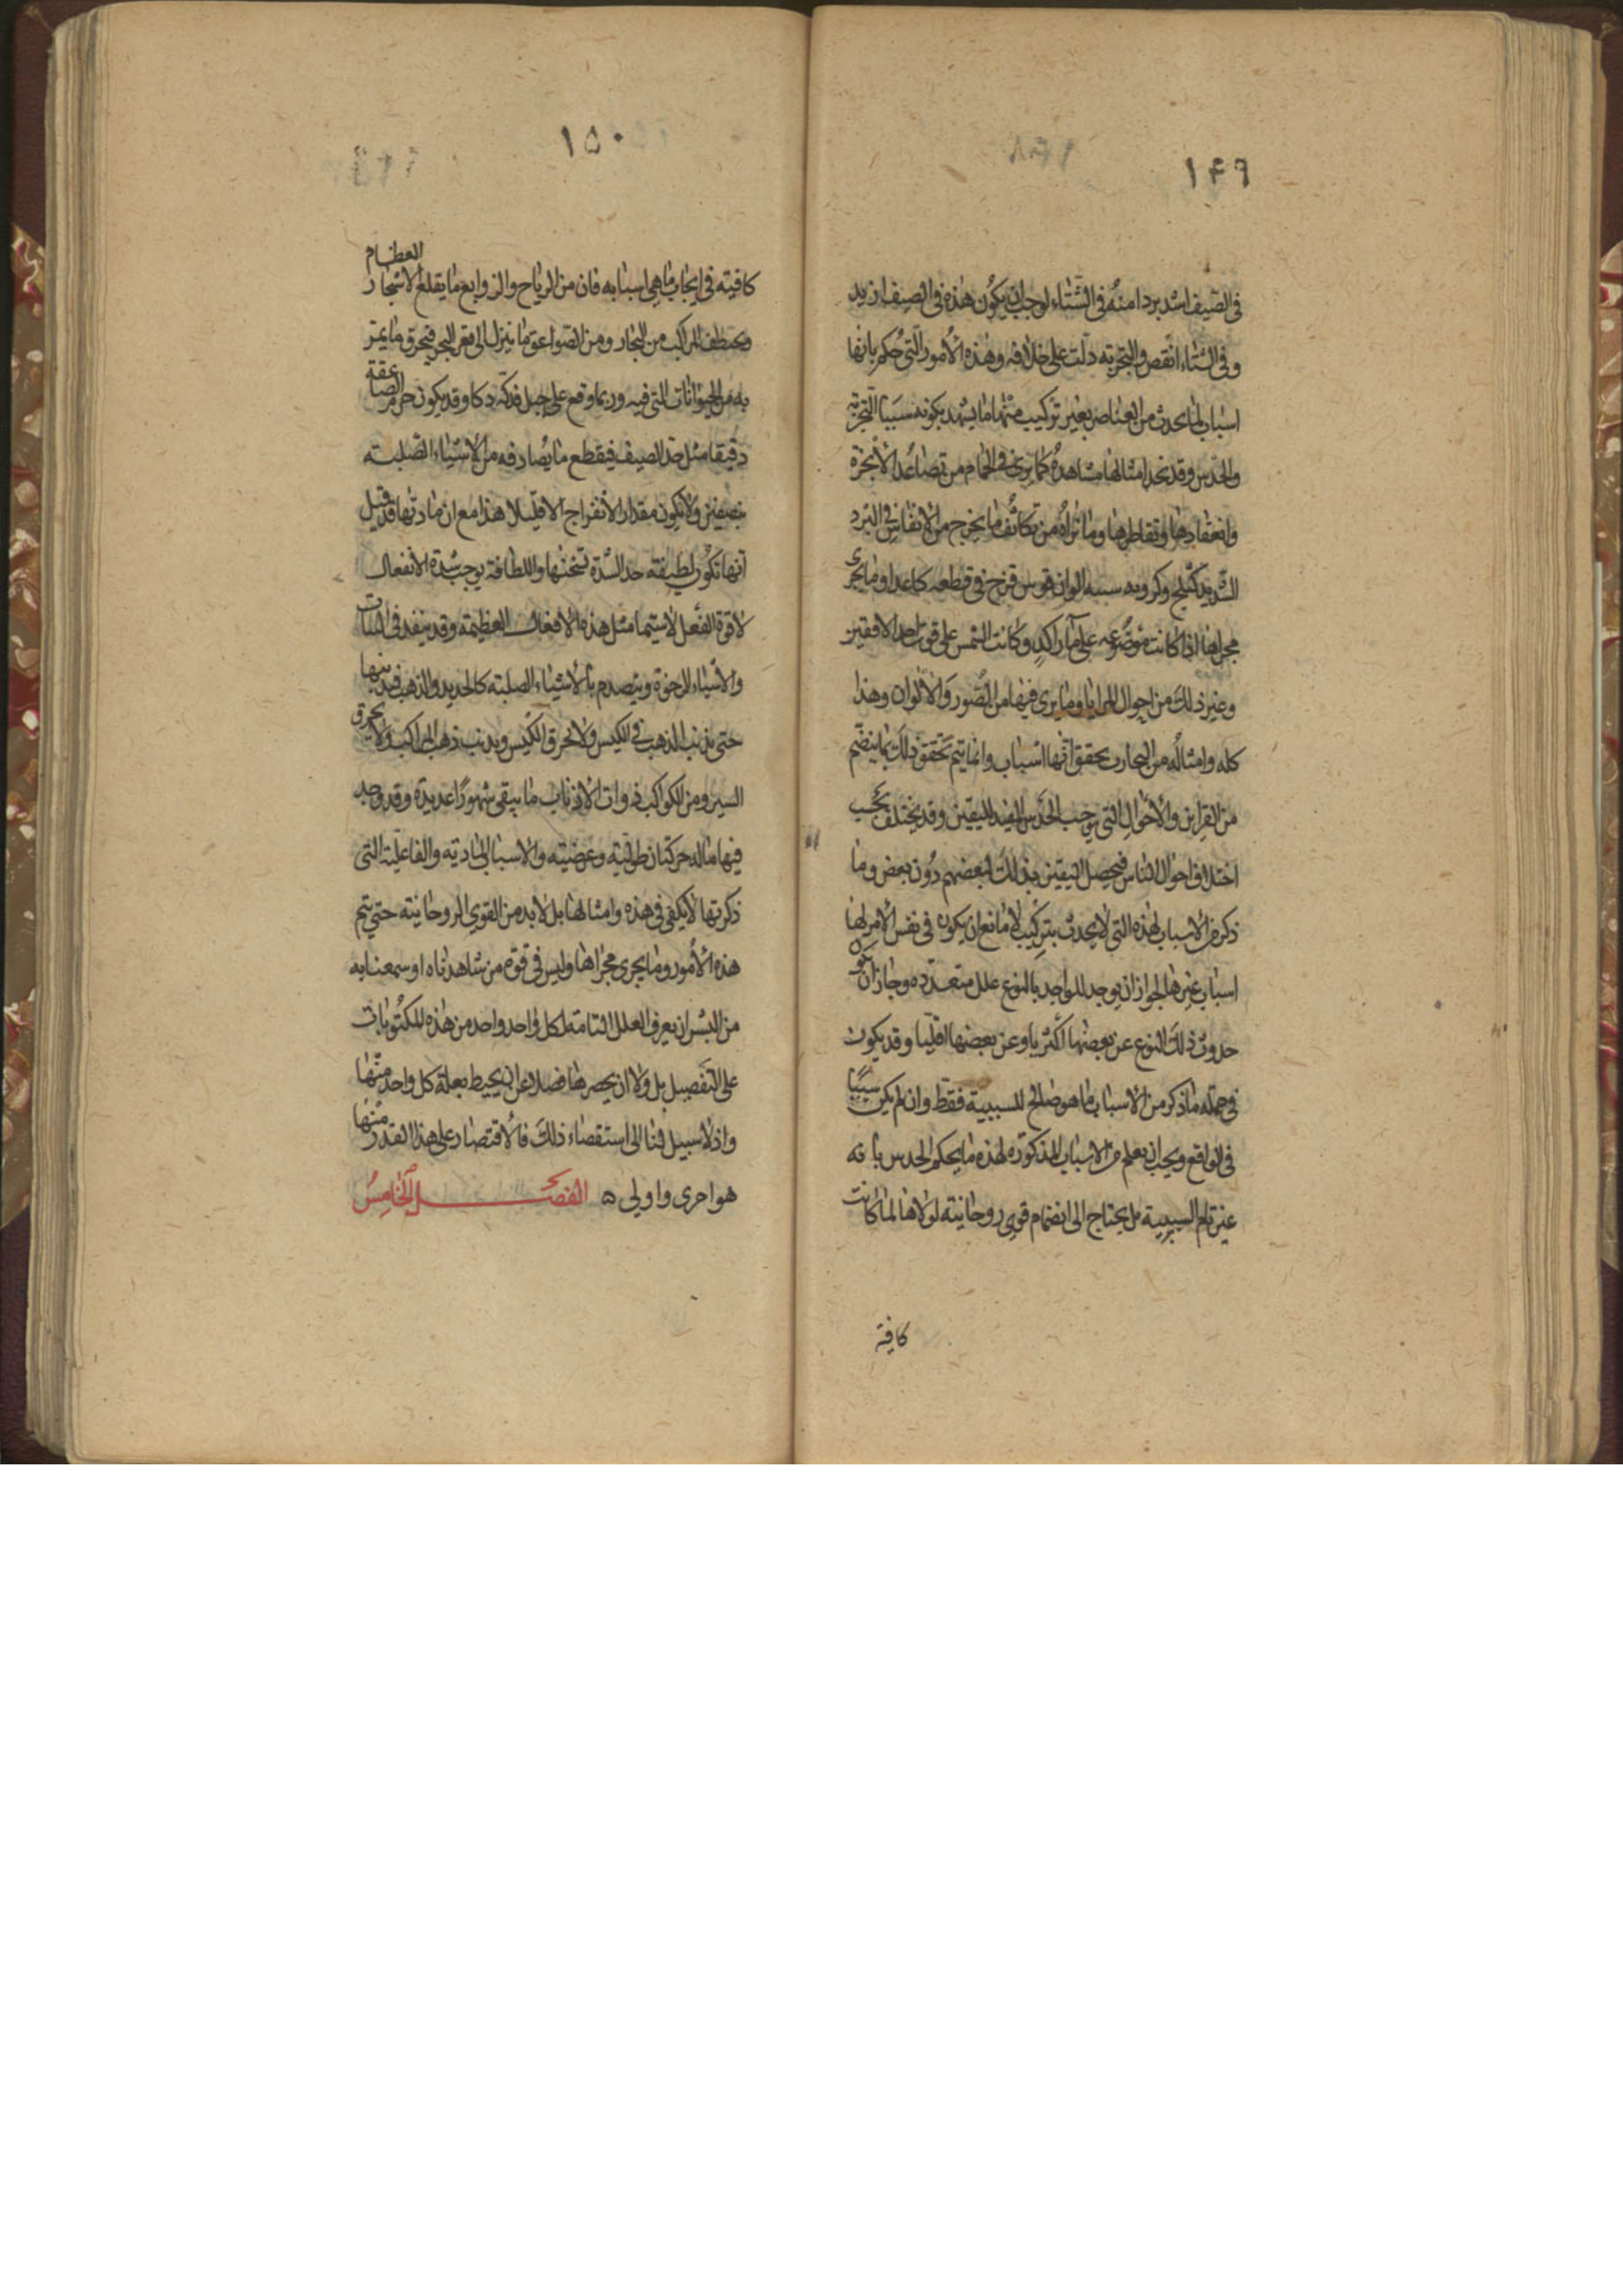 ١۴٩
فى الصيف اشد بردا منه فى الشتاء لوجب ان يكون هذه فى الصيف ازيد
وفى الشتاء انقص والتجربة دلت على خلافه وهذه الامور التى حكم بانها
اسباب لما يحدث من العناصر بغير تركيب منها ما يشهد بكونه سببا التجربة
والحدس وقد نجد امثالها مشاهدة كما يرى فى الحمام من تصاعد الابخرة
وانعقادها وتقاطرها وما نراه من تكاثف ما يخرج من الانفاس فى البرد
الشديد كثلج وكرويه سببه الوان قوس قزح فى قطعه كاغد او ما يجرى
مجراها اذا كانت موضوعه على ماء راكد وكانت الشمس على قرب احد الافقين
وغير ذلك من احوال المرايا وما يرى فيها من الصور والالوان وهذا
كله وامثاله من التجارب يحقق انها اسباب وانما يتم تحقق ذلك بما ينضم
من القراين والاحوال التى يوجب الحدس المفيد لليقين وقد يختلف بحسب
اختلاف احوال الناس فيحصل اليقين بذلك لبعضهم دون بعض وما
ذكر من الاسباب لهذه التى لا يحدث بتركيب لا مانع ان يكون فى نفس الامر لها
اسباب غيرها لجواز ان يوجد للواحد بالنوع علل متعدده وجاز ان يكون
حدوث ذلك النوع عن بعضها اكثريا وعن بعضها اقليا وقد يكون
فى جملة ما ذكر من الاسباب ما هو صالح للسببية فقط وان لم يكن سببا
فى الواقع ويجب ان يعلم من الاسباب المذكورة لهذه ما يحكم الحدس بانه
غير تام السببية بل يحتاج الى انضمام قوى روحانية لولاها لما كانت
كافية
١۵٠
كافية فى ايجاب ما هى اسبابه فان من الرياح والزوابع ما يقلع الاشجار العظام
ويختطف المراكب من البحار ومن الصواعق ما ينزل الى قعر البحر فيحرق ما يمر
به من الحيوانات التى فيه وربما وقع على جبل فدكه دكا وقد يكون جرم الصاعقة
دقيقا مثل حد السيف فيقطع ما يصادفه من الاشياء الصلبة
بنصفين ولا يكون مقدار الانفراج الا قليلا هذا مع ان مادتها قد قيل
انها تكون لطيفة جدا لشدة تسخنها واللطافة يوجب شدة الانفعال
لا قوة الفعل لا سيما مثل هذه الافعال العظيمة وقد ينفد فى الثياب
والاشياء الرخوة ويتصدم بالاشياء الصلبة كالحديد والذهب فيذيبها
حتى يذيب الذهب فى الكيس ولا يحرق الكيس ويذيب ذهب المراكب ولا يحرق
السير ومن الكواكب ذوات الاذناب ما يبقى شهورا عديدة وقد وجد
فيها ما له حركتان طولية وعرضية والاسباب المادية والفاعلية التى
ذكرتها لا يكفى فى هذه وامثالها بل لا بد من القوى الروحانية حتى يتم
هذه الامور وما يجرى مجراها وليس فى قوة من شاهدناه او سمعنا به
من البشر ان يعرف العلل التامة لكل واحد واحد من هذه المكتوبات
على التفصيل بل ولا ان يحصرها فضلا عن ان يحيط بعلة كل واحد منها
واذ لا سبيل لنا الى استقصاء ذلك فالاقتصار على هذا القدر منها
هو احرى واولى ه الفصل الخامس